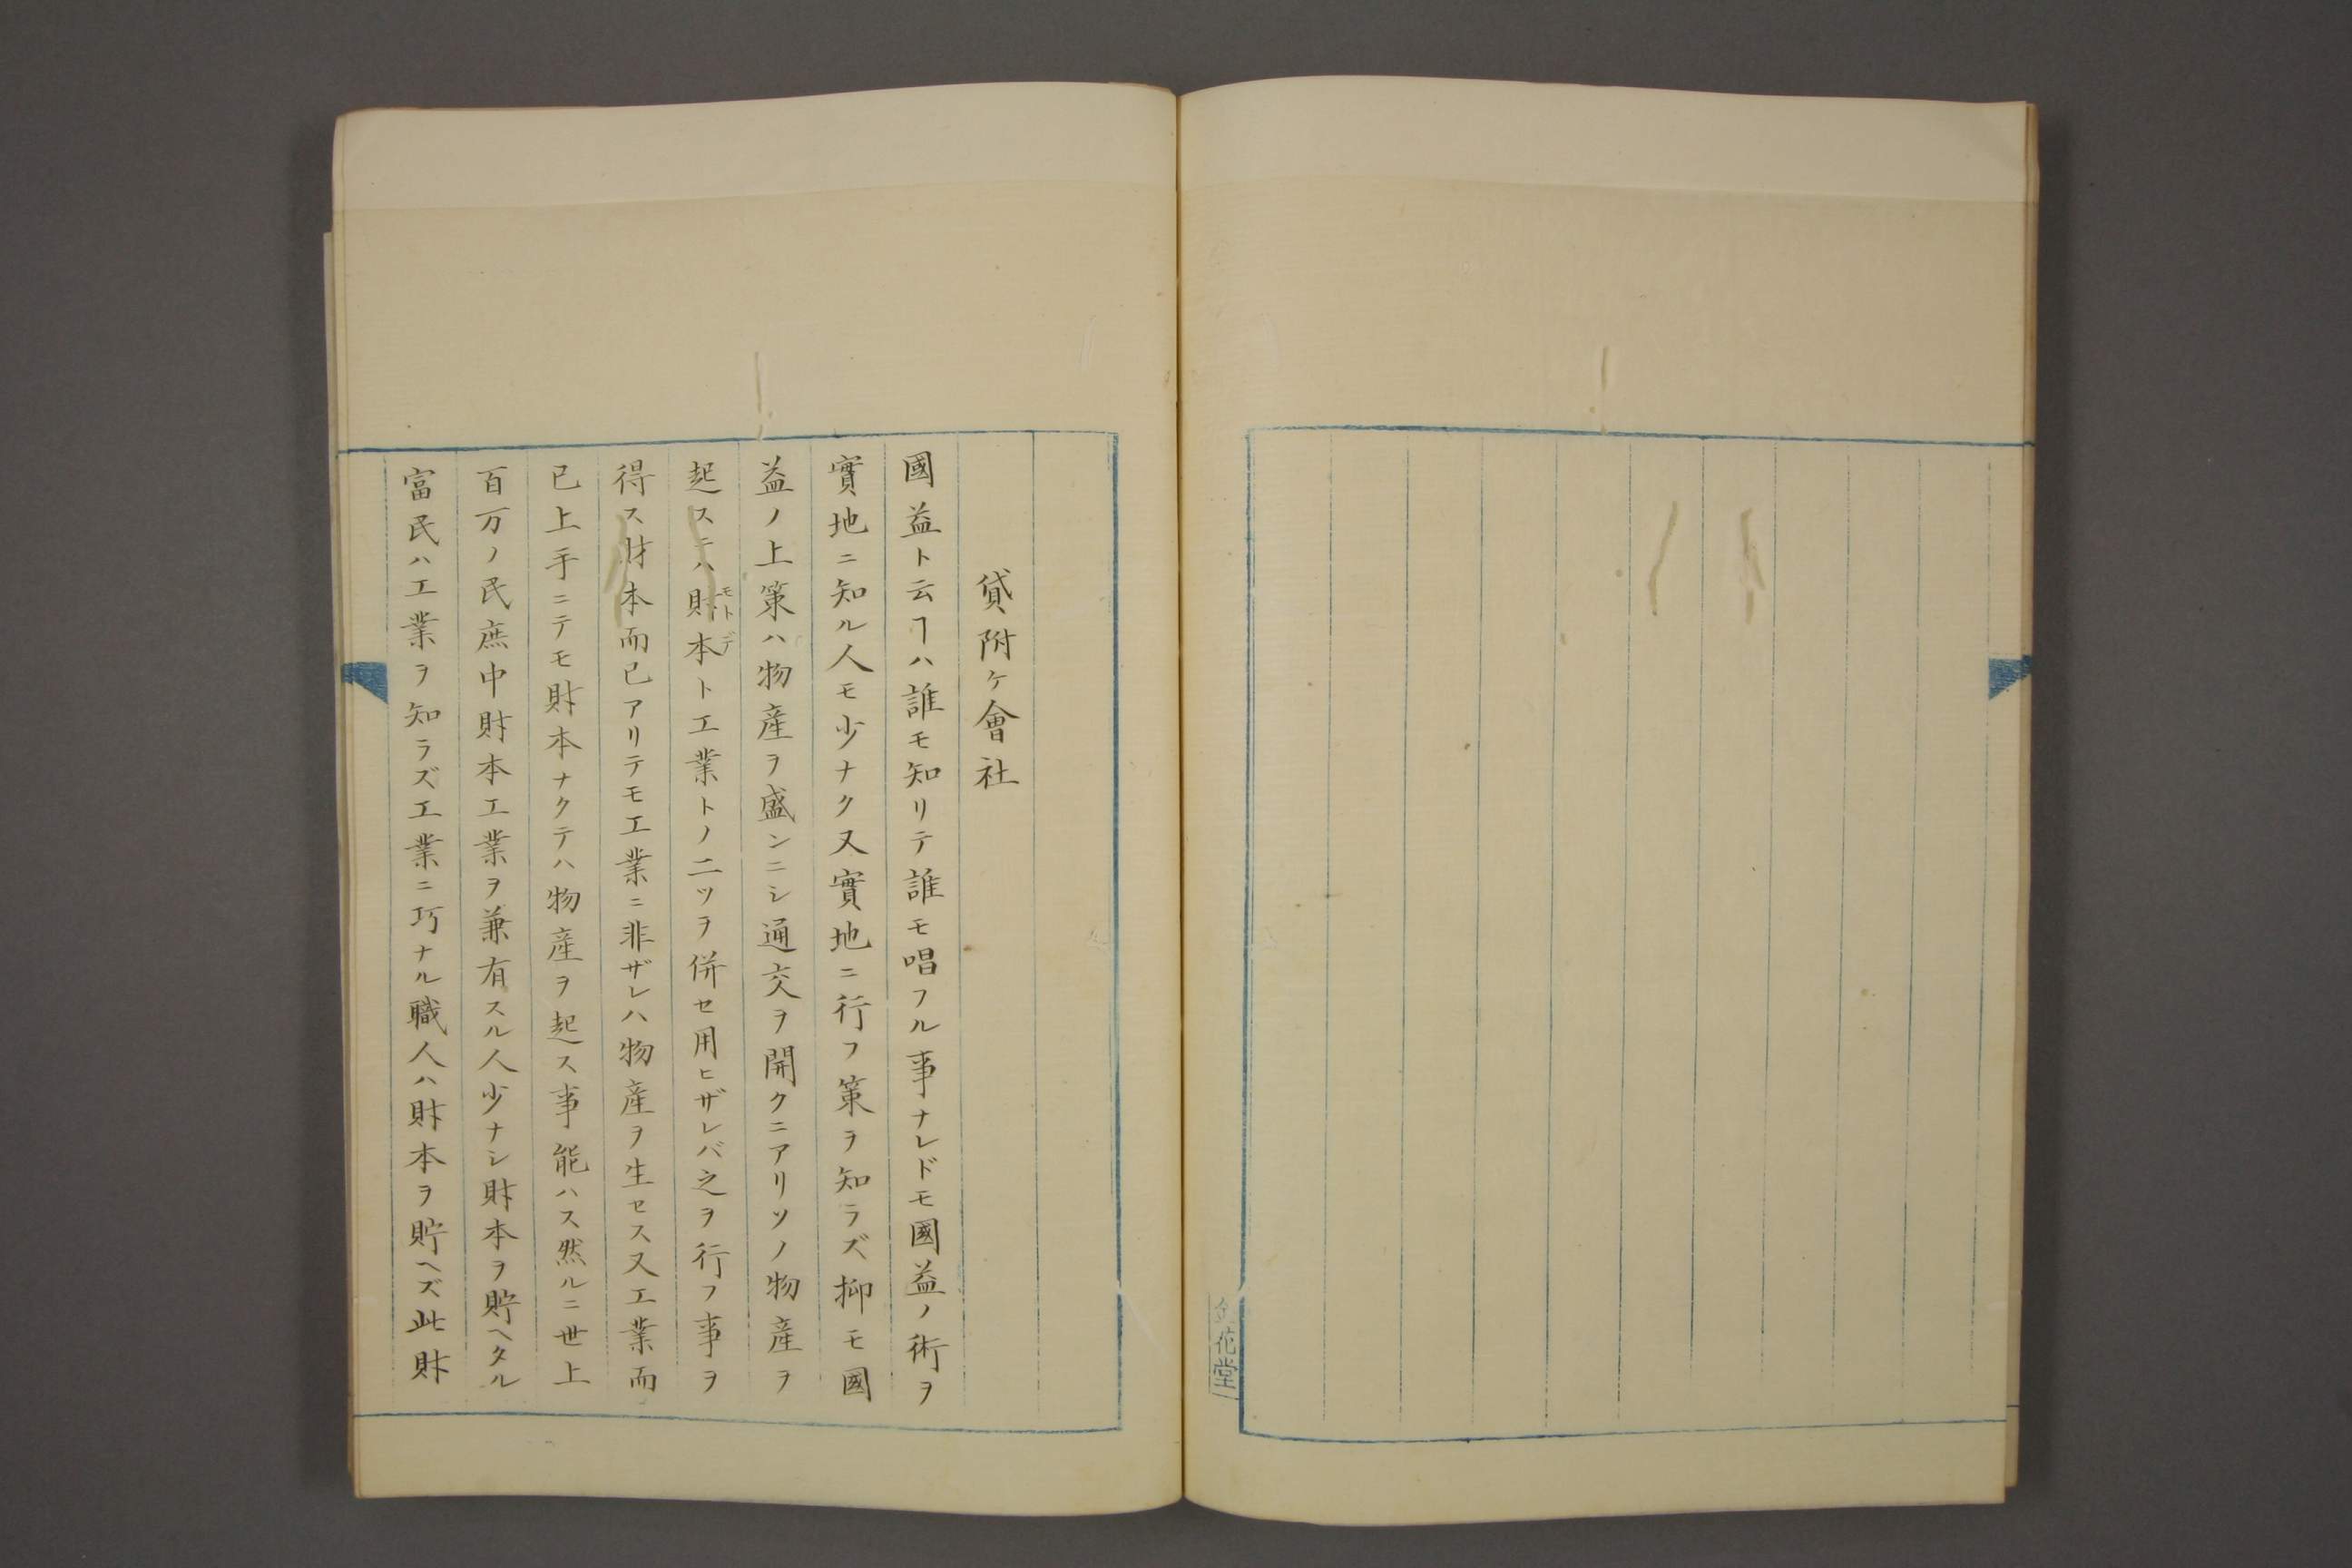 貸附ケ會社
國益ト云ヿハ誰モ知リテ誰モ唱フル事ナレドモ國益ノ術ヲ
實地ニ知ル人モ少ナク又實地ニ行フ策ヲ知ラズ抑モ國
益ノ上策ハ物産ヲ盛ンニシ通交ヲ開クニアリソノ物産ヲ
モトデ
起スニハ財本ト工業トノ二ツヲ併セ用ヒザレバ之ヲ行フ事ヲ
得ス財本而已アリテモ工業ニ非ザレハ物産ヲ生セス又工業而
已上手ニテモ財本ナクテハ物産ヲ起ス事能ハス然ルニ世上
百万ノ民庶中財本工業ヲ兼有スル人少ナシ財本ヲ貯ヘタル
富民ハ工業ヲ知ラズ工業ニ巧ナル職人ハ財本ヲ貯ヘズ此財
花堂